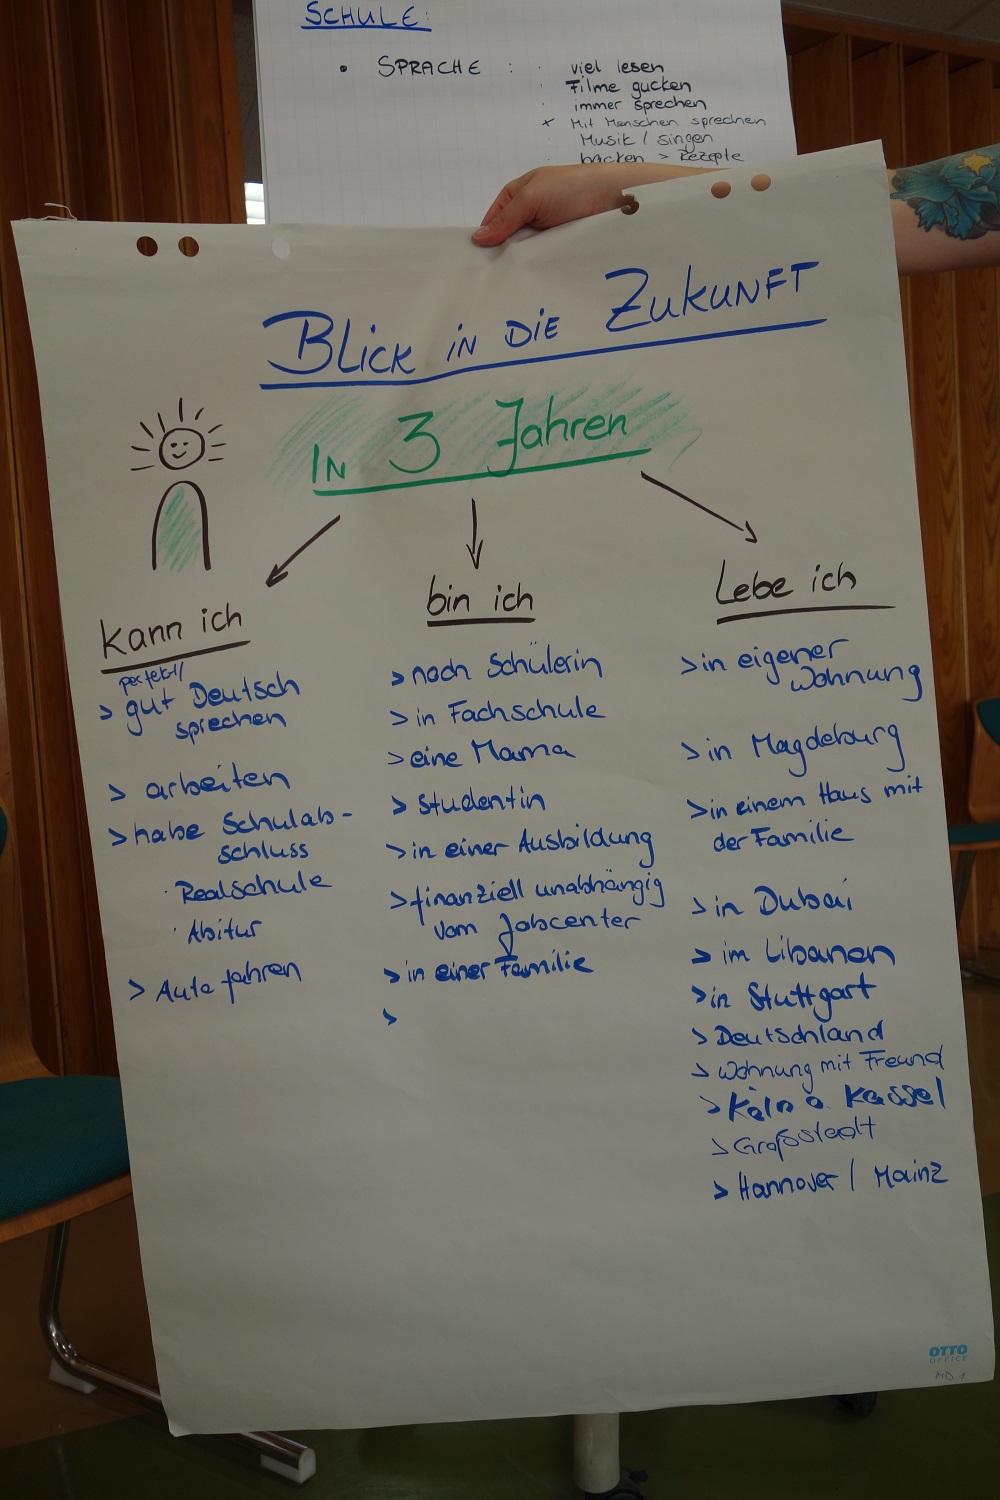 SCHULE:
• SPRACHE : · viel lesen
· Filme gucken
· immer sprechen
x Mit Menschen sprechen
· Musik / singen
· backen > Rezepte
BLICK IN DIE ZUKUNFT
IN 3 Jahren
kann ich
perfekt!/
> gut Deutsch
sprechen
> arbeiten
> habe Schulab-
schluss
· Realschule
· Abitur
> Auto fahren
bin ich
> noch Schülerin
> in Fachschule
> eine Mama
> Studentin
> in einer Ausbildung
> finanziell unabhängig
vom Jobcenter
> in einer Familie
>
Lebe ich
> in eigener
Wohnung
> in Magdeburg
> in einem Haus mit
der Familie
> in Dubai
> im Libanon
> in Stuttgart
> Deutschland
> Wohnung mit Freund
> Köln o. Kassel
> Großstadt
> Hannover / Mainz
OTTO
OFFICE
MD 1